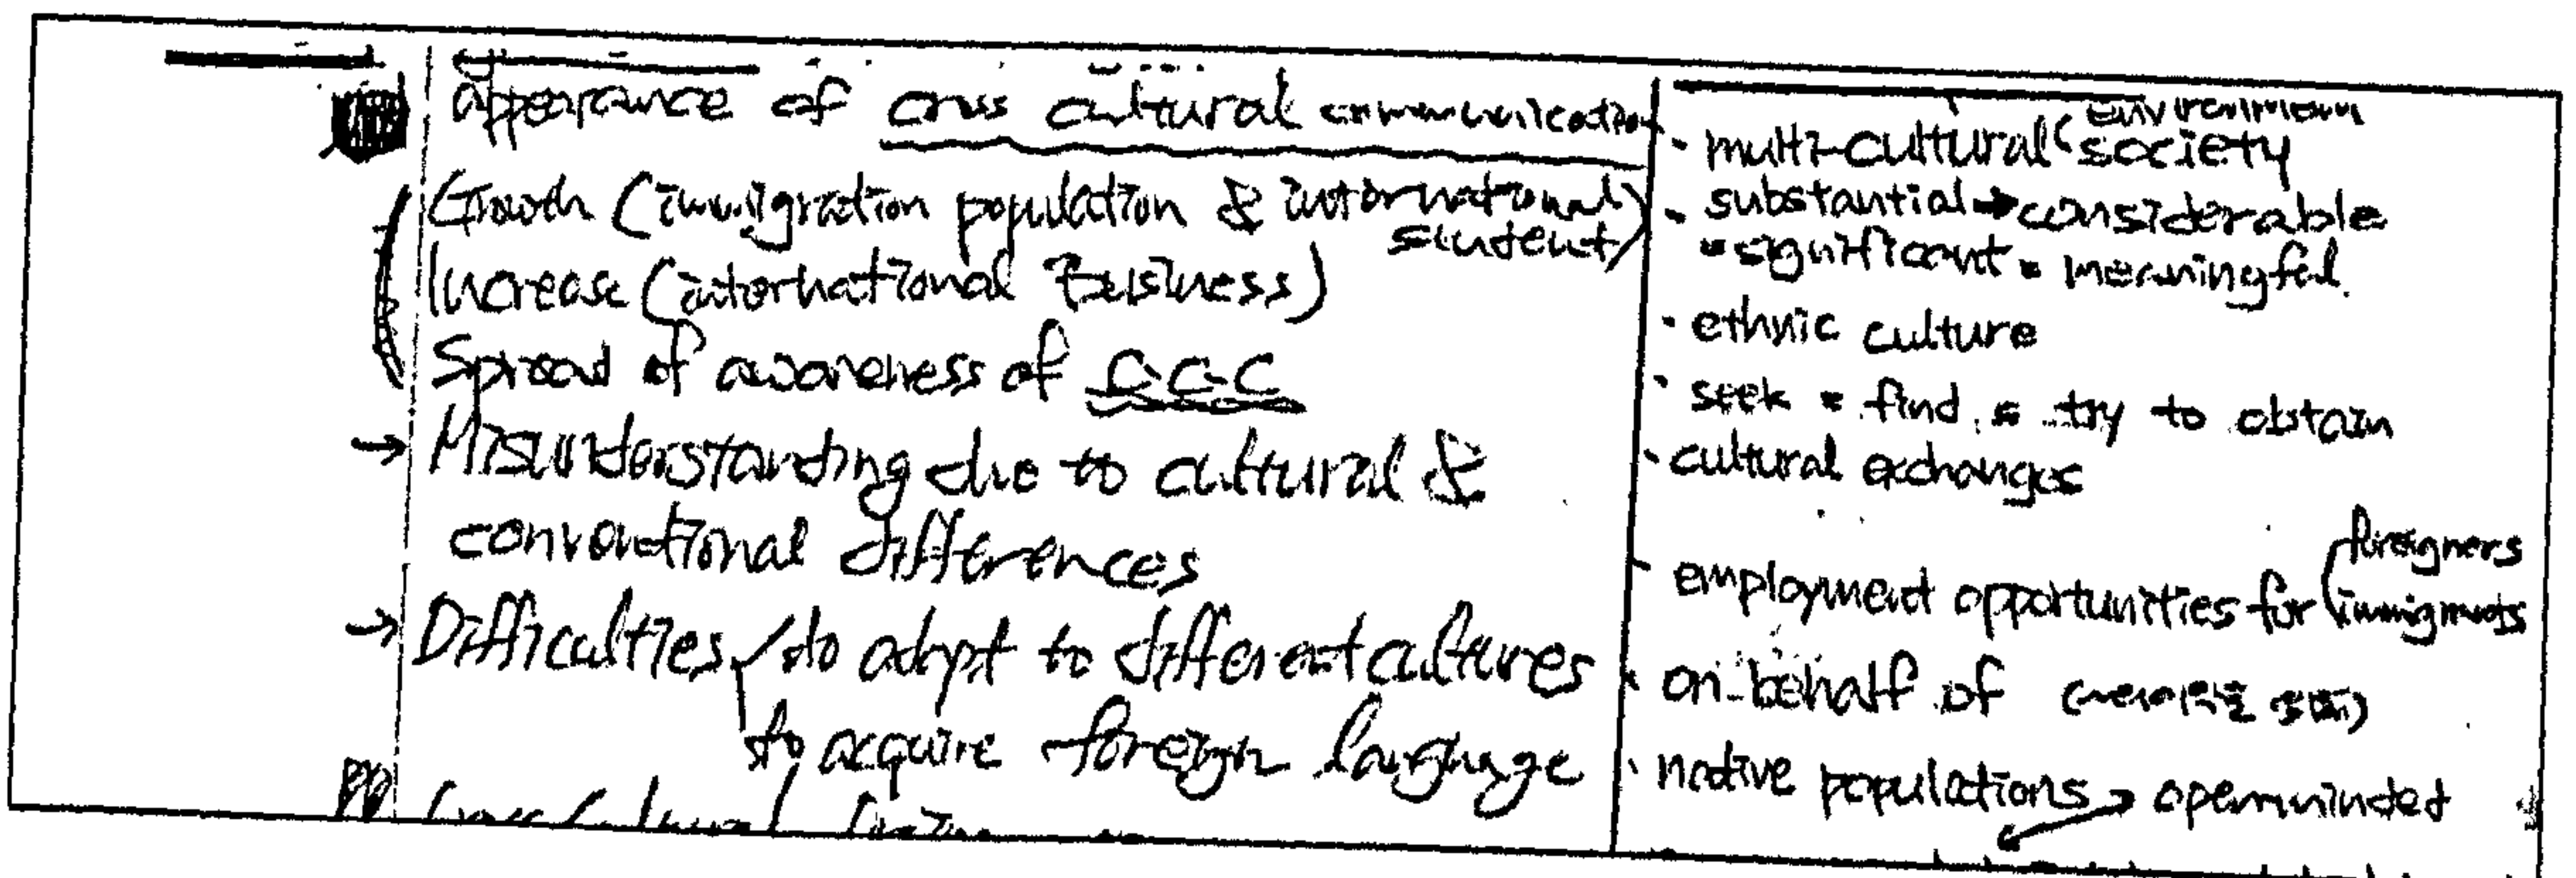 appearance of cross cultural communication
Growth (immigration population & international
student)
Increase (international Business)
Spread of awareness of C.C.C
→ Misunderstanding due to cultural &
conventional differences
→ Difficulties to adapt to different cultures
to acquire foreign language
environment
· multi-cultural society
· substantial → considerable
= significant = meaningful.
· ethnic culture
· seek = find = try to obtain
· cultural exchanges
foreigners
· employment opportunities for immigrants
· on behalf of
· native populations → openminded